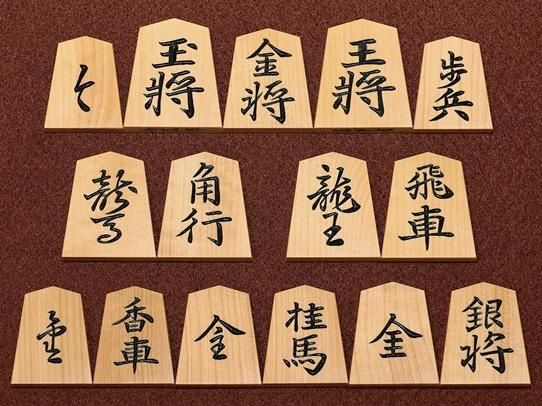 と 玉将 金将 王将 歩兵
龍馬 角行 龍王 飛車
香車 全 桂馬 全 銀将